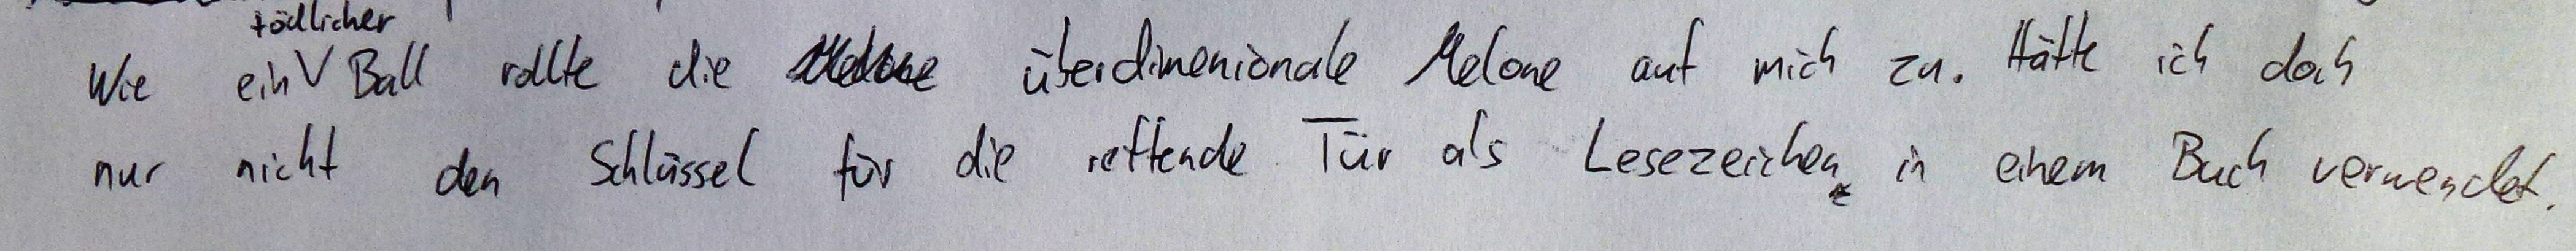 Wie ein tödlicher Ball rollte die überdimenionale Melone auf mich zu. Hätte ich doch
nur nicht den Schlüssel für die rettende Tür als Lesezeichen in einem Buch verwendet.